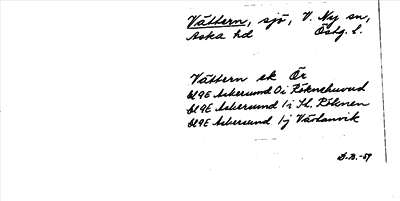 Vättern, sjö, V. Ny sn,
Aska hd Östg. l.
Vättern sk Ör
bl 9E Askersund 0i Röknehuvud
bl 9E Askersund 1i St. Röknen
bl 9E Askersund 1j
D.B. -59